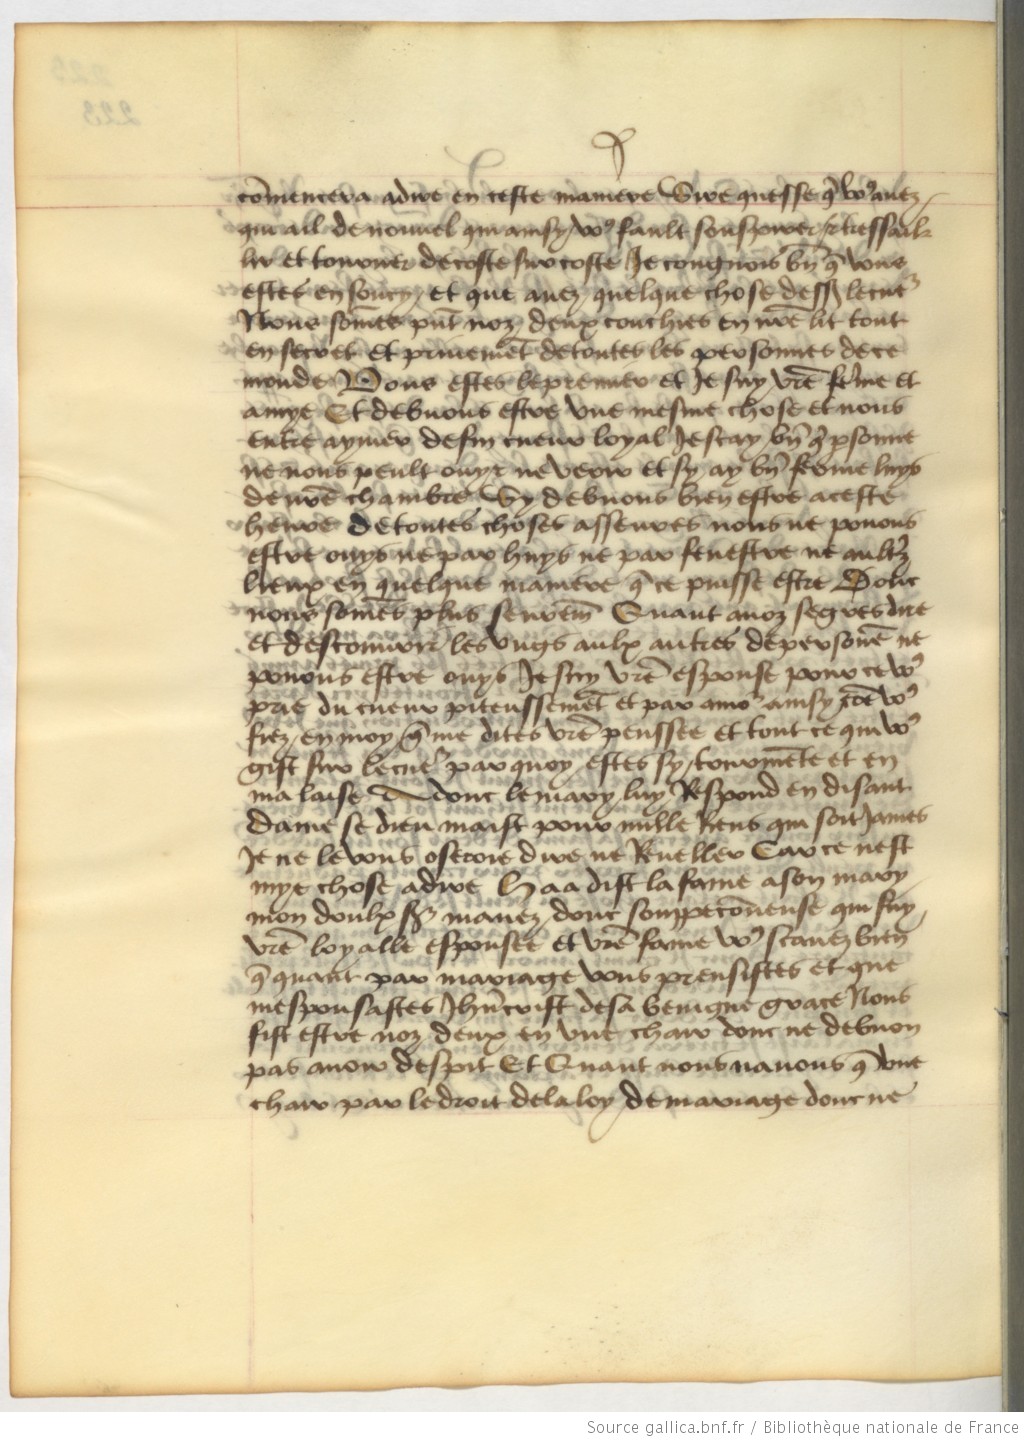 cõmencera adire en ceste maniere Sire quesse q̃ voꝰ avez
qui a il de nouvel qui ainsy voꝰ fault souspirer tressail
lir et tourner de coste sur coste Je congnois bñ q̃ vous
estes en soucy et que avez quelque chose dessꝰ le cueʳ
Nous som̃es pñt noz deux couchies en nr̃e lit tout
en secret et priveemẽt de toutes les personnes de ce
monde Vous estes le premier et Je suy vr̃e fẽme et
amye Et debvons estre une mesme chose et nous
entre aymer de fin cueur loyal Je scay bñ q̃ psonne
ne nous peult ouyr ne veoir et sy ay bñ ferme luys
de nr̃e chambre Sy debvons bien estre a ceste
heure de toutes choses asseures nous ne povons
estre ouys ne par huys ne par fenestre ne aultˢ
lieux en quelque maniere q̃ ce puisse estre Donc
nous som̃es plus seurem̃ Quant a noz segres dire
et descouvrir les ungs aulx autres de personẽ ne
povons estre ouys Je suy vr̃e espouse pour ce voꝰ
prie du cueur piteussemẽt et par amoʳ ainsy cõe voꝰ
fiez en moy q̃ me dites vr̃e penssee et tout ce qui voꝰ
gist sur le cueʳ par quoy estes sy tourmẽte et en
malaise Adonc le mary luy Respond en disant
dame se dieu maist pour mille Riens qui soit James
Je ne le vous oseroie dire ne Reveller Car ce nest
mye chose adire Haa dist la fame a son mary
mon doulx sʳ mavez donc souspeconneuse qui suy
vr̃e loyalle espousee et vr̃e fame voꝰ scavez bien
q̃ quant par mariage vous prensistes et que
mespousastes Jhũcrist de sa benigne grace Nous
fist estre noz deux en une char donc ne debvon
pas avoir despit Et Quant nous navons q̃ une
char par le droit de la loy de mariage donc ne
Source gallica.bnf.fr / Bibliothèque nationale de France